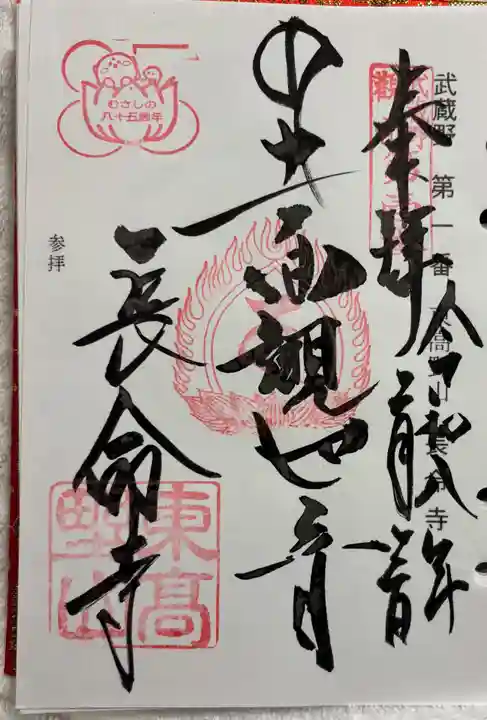 武蔵野 第一番 東高野山 長命寺
奉拝
十一面観世音
長命寺
むさしの
八十五周年
参拝
東高
野山